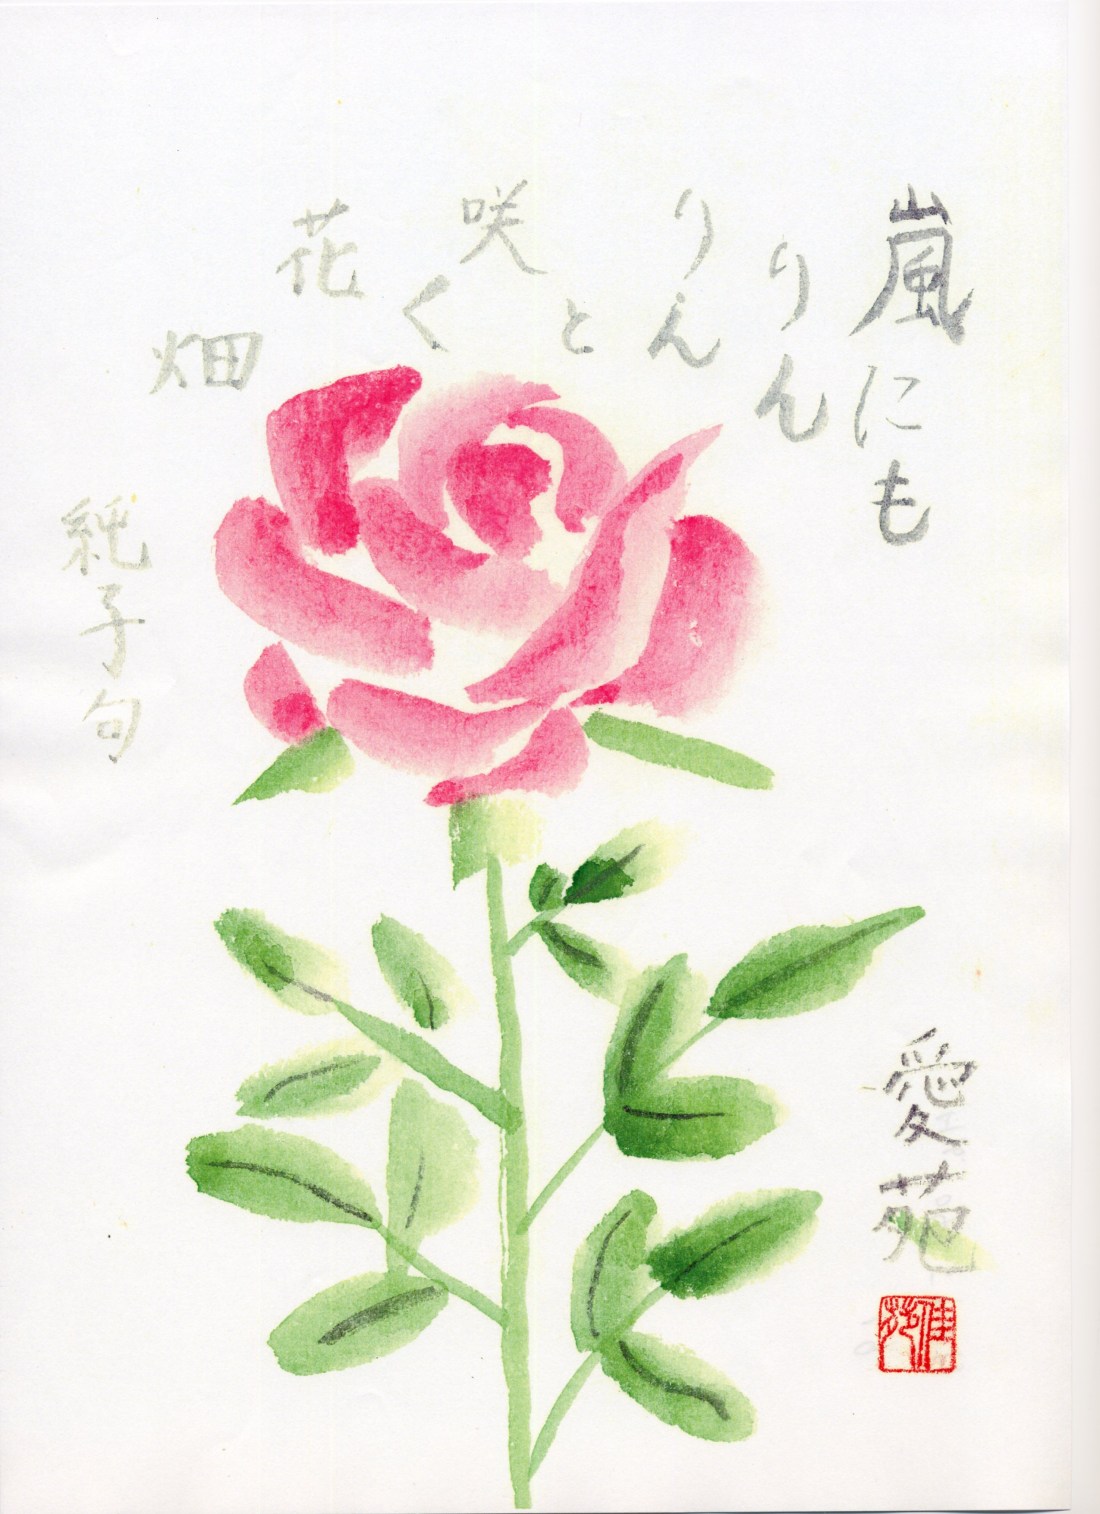 嵐にも
りん
りん
と
咲
く
花
畑
純子句
愛苑